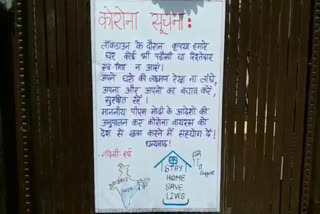 कोरोना सूचना:
लॉकडाउन के दौरान कृपया हमारे
घर कोई भी पड़ोसी या रिश्तेदार
एवं मित्र न आएं।
अपने घरों की लक्ष्मण रेखा ना लांघे,
अपना और अपनों का बचाव करें,
सुरक्षित रहें।
माननीय पीएम मोदी के आदेशों की
अनुपालन कर कोरोना वायरस को
देश से खत्म करने में सहयोग दें!
धन्यवाद!
STAY
HOME
SAVE
LIVES